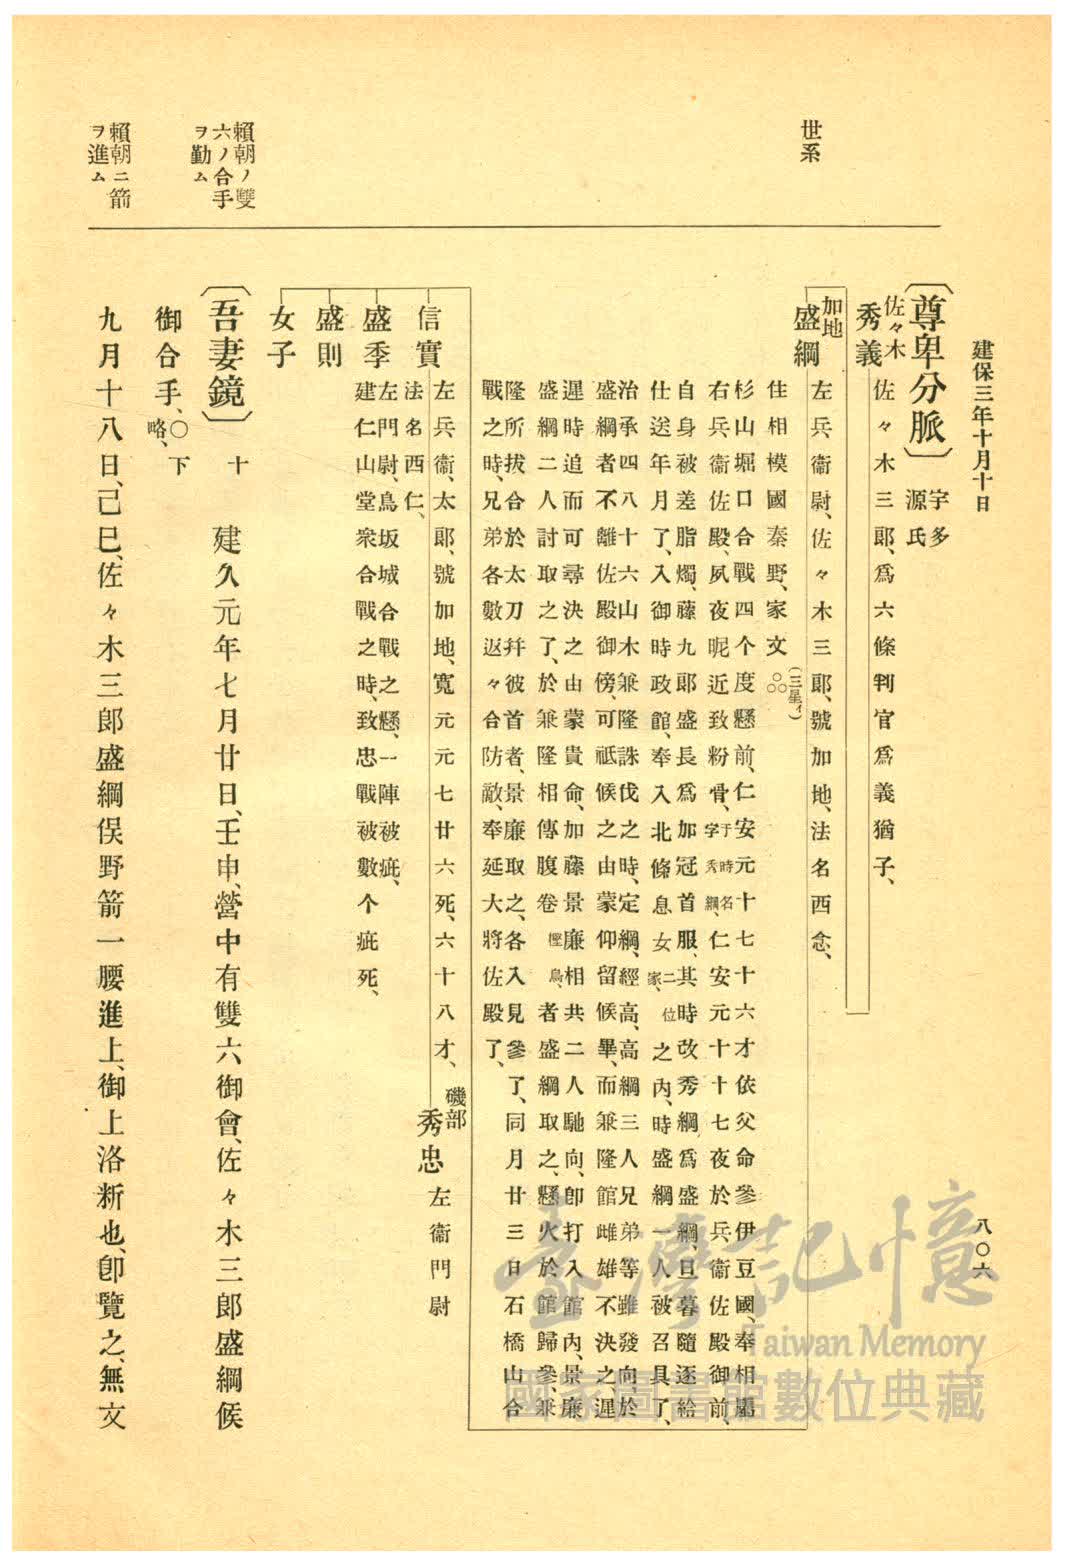 建保三年十月十日
八〇六
世系
〔尊卑分脈〕宇多源氏
佐々木
秀義
佐々木三郞、爲六條判官爲義猶子、
加地
盛綱
左兵衞尉、佐々木三郞、號加地、法名西念、
住相模國秦野、家文(三星イ)
杉山堀口合戰四个度懸前、仁安元十七十六才依父命參伊豆國、奉相屬
右兵衞佐殿、夙夜昵近致粉骨、于時名字秀綱、仁安元十十七夜於兵衞佐殿御前、
自身被差脂燭、藤九郞盛長爲加冠首服、其時改秀綱爲盛綱、旦暮隨逐給
仕送年月了、入御時政館、奉入北條息女二位家、之內、時盛綱一人被召具了、
治承四八十六山木兼隆誅伐之時、定綱、經高、高綱三人兄弟等雖發向、於
盛綱者不離佐殿御傍、可祇候之由蒙仰留候畢、而兼隆館雌雄不決之、遲
遲時追而可尋決之由蒙貴命、加藤景廉相共二人馳向、卽打入館內、景廉
盛綱二人討取之了、於兼隆相傳腹卷樫鳥、者盛綱取之、懸火於館歸參、兼
隆所拔合於太刀幷彼首者、景廉取之、各入見參了、同月廿三日石橋山合
戰之時、兄弟各數返々合防敵、奉延大將佐殿了、
信實
左兵衞、太郞、號加地、寬元元七廿六死、六十八才、
法名西仁、
磯部
秀忠
左衞門尉
盛季
左門尉、鳥坂城合戰之懸、一陣被疵、
建仁山堂衆合戰之時、致忠戰被數个疵死、
盛則
女子
賴朝ノ雙
六ノ合手
ヲ勤ム
〔吾妻鏡〕十 建久元年七月廿日、壬申、營中有雙六御會、佐々木三郎盛綱候
御合手、〇下略、
賴朝ニ箭
ヲ進ム
九月十八日、己巳、佐々木三郎盛綱俣野箭一腰進上、御上洛新也、卽覽之、無文
臺灣記憶
Taiwan Memory
國家圖書館數位典藏